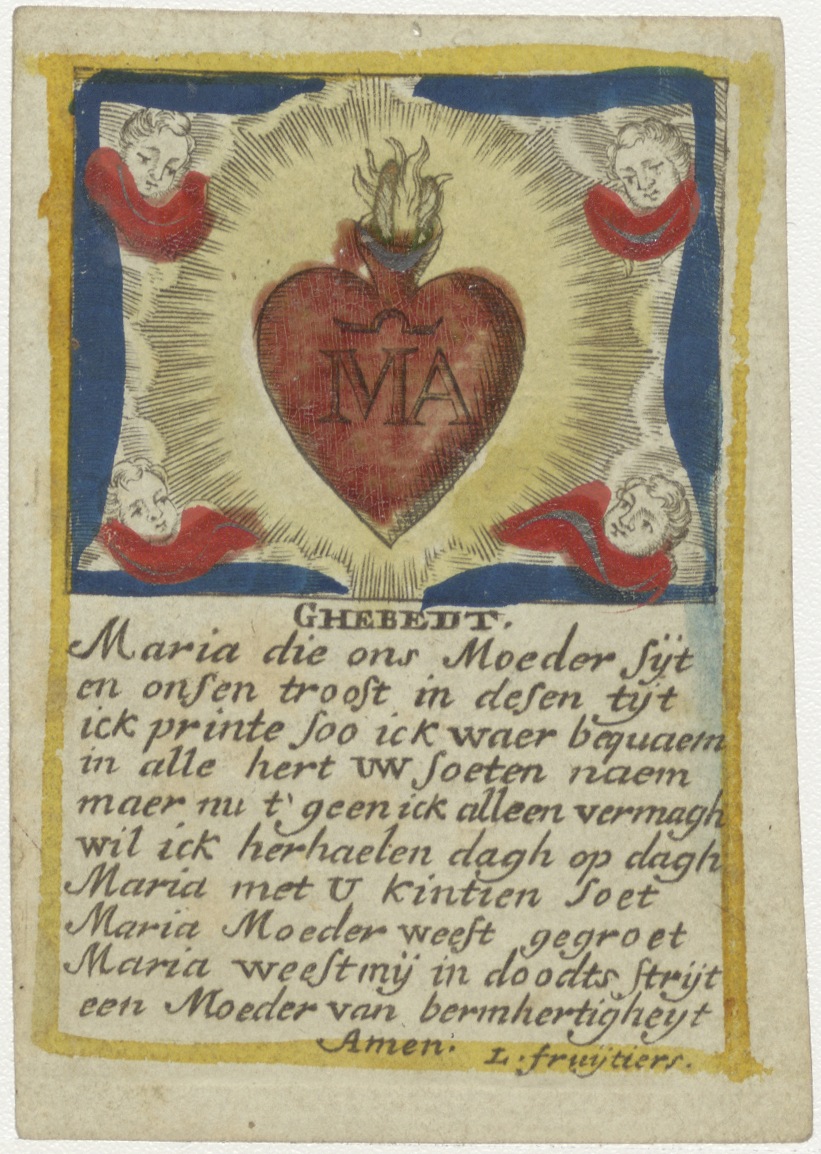 MA
GHEBEDT.
Maria die ons Moeder sijt
en onsen troost in desen tijt
ick printe soo ick waer bequaem
in alle hert UW soeten naem
maer nu t' geen ick alleen vermagh
wil ick herhaelen dagh op dagh
Maria met U kintien soet
Maria Moeder weest gegroet
Maria weest mij in doodts strijt
een Moeder van bermhertigheyt
Amen.
L. fruijtiers.